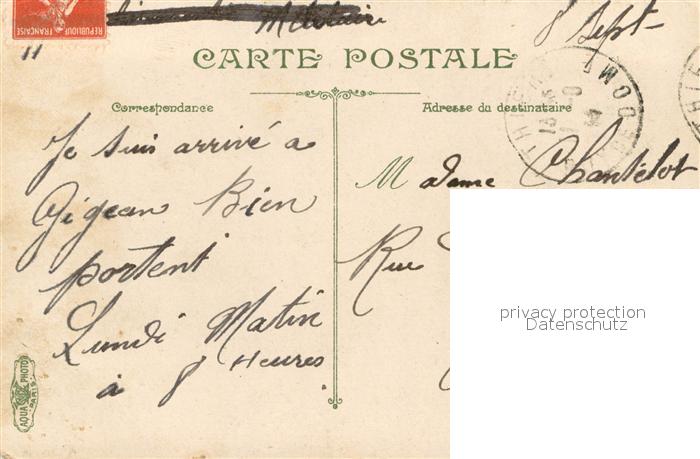 REPUBLIQUE FRANÇAISE
Militaire
8 Sept
11
CARTE POSTALE
Correspondance
Adresse du destinataire
THIERS
DOME
Je suis arrivé a
Gigean Bien
portent
Lundi Matin
à 8 Heures
Madame Chantelot
Rue
AQUA PHOTO
PARIS
privacy protection
Datenschutz